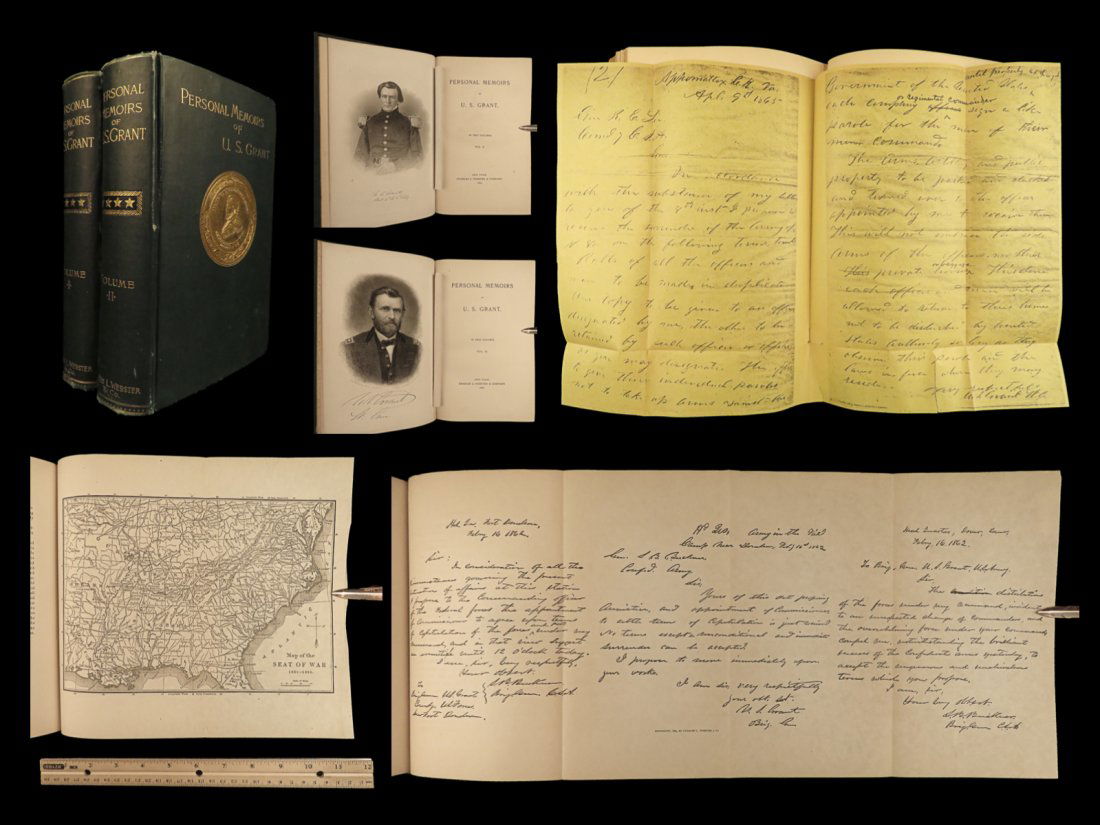 PERSONAL
MEMOIRS
OF
U.S. GRANT
VOLUME
PERSONAL
MEMOIRS
OF
U.S. GRANT
VOLUME
-II-
WEBSTER
& CO.
PERSONAL MEMOIRS
OF
U. S. GRANT
PERSONAL MEMOIRS
OF
U. S. GRANT.
IN TWO VOLUMES.
VOL. I.
NEW YORK
CHARLES L. WEBSTER & COMPANY
PERSONAL MEMOIRS
OF
U. S. GRANT.
IN TWO VOLUMES.
VOL. II.
NEW YORK
CHARLES L. WEBSTER & COMPANY
U. S. Grant
Lt. Gen
(2)
Appomattox C.H. Va.
Apl. 9th 1865
Gen. R. E. Lee
Comd'g C.S.A.
In accordance
with the substance of my letter
to you of the 8th inst. I propose to
receive the surrender of the Army of
N. Va. on the following terms, towit:
Rolls of all the officers and
men to be made in duplicate
One copy to be given to an officer
designated by me, the other to be
retained by such officer or officers
as you may designate. The officers
to give their individual paroles
not to take up arms against the
until properly exchanged
Government of the United States
regimental commander
each company or sign a like
parole for the men of their
commands
The Arms, Artillery and public
property to be parked and stacked
and turned over to the officer
appointed by me to receive them.
This will not embrace the side
arms of the officers, nor their
private horses or baggage. This done
each officer and man will be
allowed to return to their homes
not to be disturbed by United
States Authority so long as they
observe their parole and the
laws in force where they may
reside.
Very respectfully
U. S. Grant Lt. Gn
Map of the
SEAT OF WAR
1861-1865.
1 2 3 4 5 6 7 8 9 10 11 12
Hd Qrs, Fort Donelson,
Feby 16, 1862.
Sir:
In consideration of all the
circumstances governing the present
situation of affairs at this station
I propose to the Commanding officer
of the Federal forces the appointment
of Commissioners to agree upon terms
of capitulation of the forces under my
command, and in that view suggest
an armistice until 12 O'clock today.
I am, sir, very respectfully,
Your obt servt,
S. B. Buckner
Brig Gen C.S.A.
To
Brigadier U.S. Grant
Comdg U.S. Forces
near Fort Donelson.
Hd Qrs. Army in the Field
Camp Near Donelson, Feby 16th 1862
Gen. S. B. Buckner
Confed. Army
Sir,
Yours of this date proposing
Armistice, and appointment of Commissioners
to settle terms of Capitulation is just received
No terms except unconditional and immediate
surrender can be accepted.
I propose to move immediately upon
your works.
I am sir, very respectfully
your obt. svt.
U. S. Grant
Brig. Gen
Head Quarters, Dover, Tenn,
Feby. 16, 1862.
To Brig. Gen. U. S. Grant, U.S. Army
Sir,
The distribution
of the forces under my command, incident
to an unexpected change of commanders, and
the overwhelming force under your command,
compel me, notwithstanding the brilliant
success of the Confederate arms yesterday, to
accept the ungenerous and unchivalrous
terms which you propose.
I am, sir,
Your very obt svt.
S. B. Buckner,
Brig Gen C.S.A.